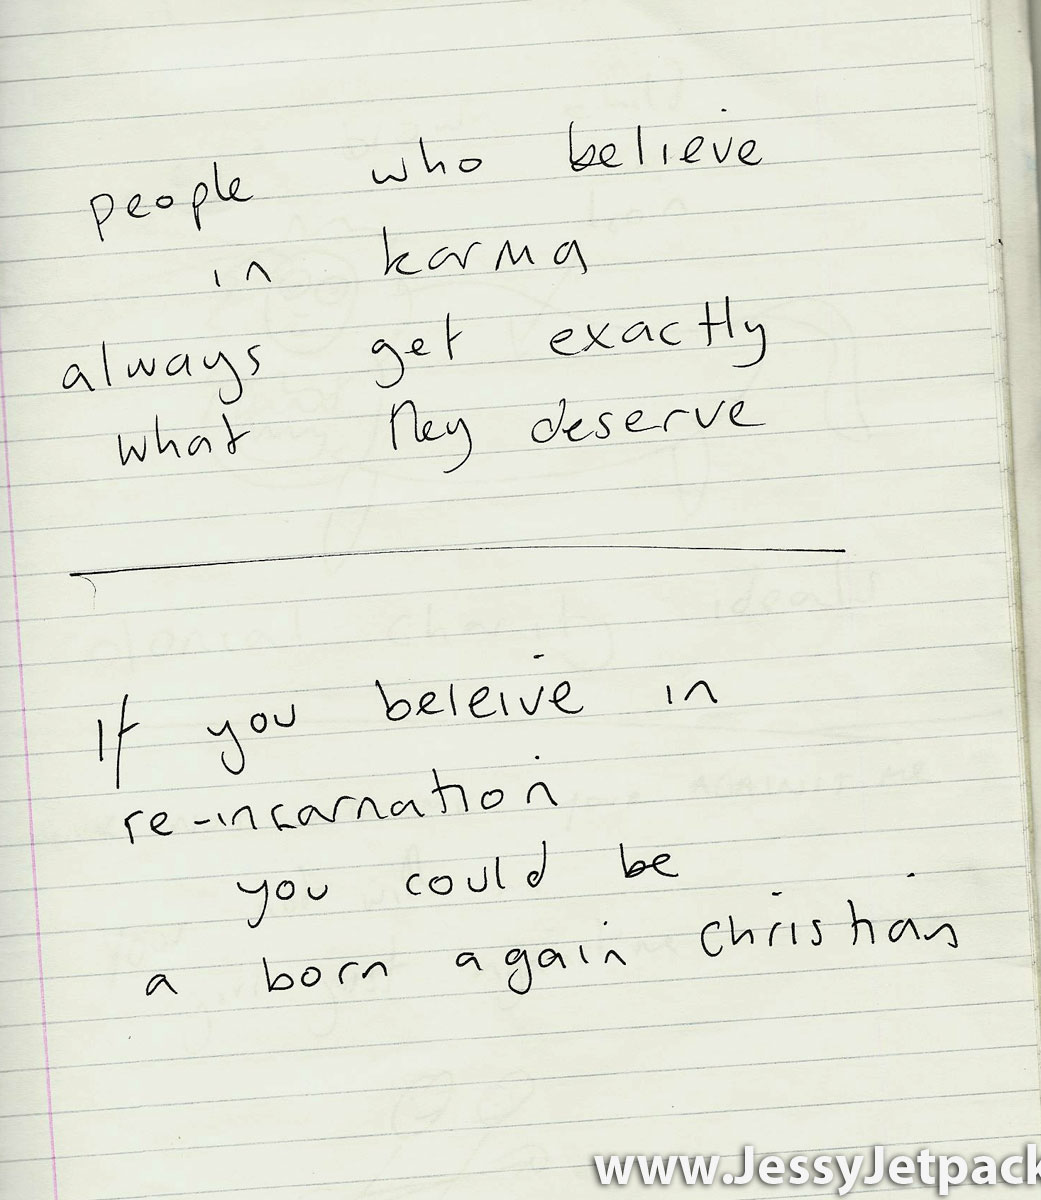 people who believe
in karma
always get exactly
what they deserve
If you beleive in
re-incarnation
you could be
a born again christian
www.JessyJetpack